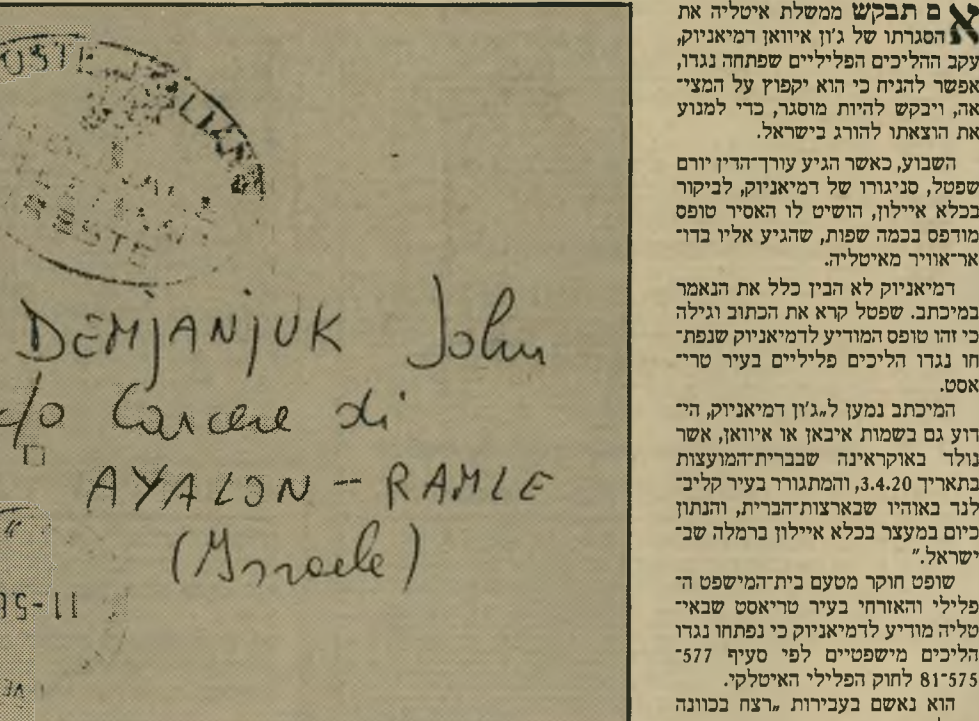 DEMJANJUK John
c/o Carcere di
AYALON - RAMLE
(Israele)
אם תבקש ממשלת איטליה את
הסגרתו של ג'ון איוואן דמיאניוק,
עקב ההליכים הפליליים שפתחה נגדו,
אפשר להניח כי הוא יקפוץ על המצי־
אה, ויבקש להיות מוסגר, כדי למנוע
את הוצאתו להורג בישראל.
השבוע, כאשר הגיע עורך־הדין יורם
שפטל, סניגורו של דמיאניוק, לביקור
בכלא איילון, הושיט לו האסיר טופס
מודפס בכמה שפות, שהגיע אליו בדו־
אר־אוויר מאיטליה.
דמיאניוק לא הבין כלל את הנאמר
במיכתב. שפטל קרא את הכתוב וגילה
כי זהו טופס המודיע לדמיאניוק שנפת־
חו נגדו הליכים פליליים בעיר טרי־
אסט.
המיכתב נמען ל„ג'ון דמיאניוק, הי־
דוע גם בשמות איבאן או איוואן, אשר
נולד באוקראינה שבברית־המועצות
בתאריך 3.4.20, והמתגורר בעיר קליב־
לנד באוהיו שבארצות־הברית, והנתון
כיום במעצר בכלא איילון ברמלה שב־
ישראל."
שופט חוקר מטעם בית־המישפט ה־
פלילי והאזרחי בעיר טריאסט שבאי־
טליה מודיע לדמיאניוק כי נפתחו נגדו
הליכים מישפטיים לפי סעיף 577־
575־81 לחוק הפלילי האיטלקי.
הוא נאשם בעבירות „רצח בכוונה